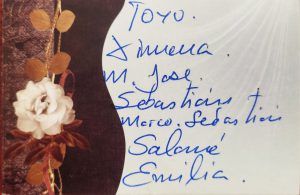 TOYO.
Ximena.
M. José.
Sebastián.
Marco. Sebastián
Salomé
Emilia.